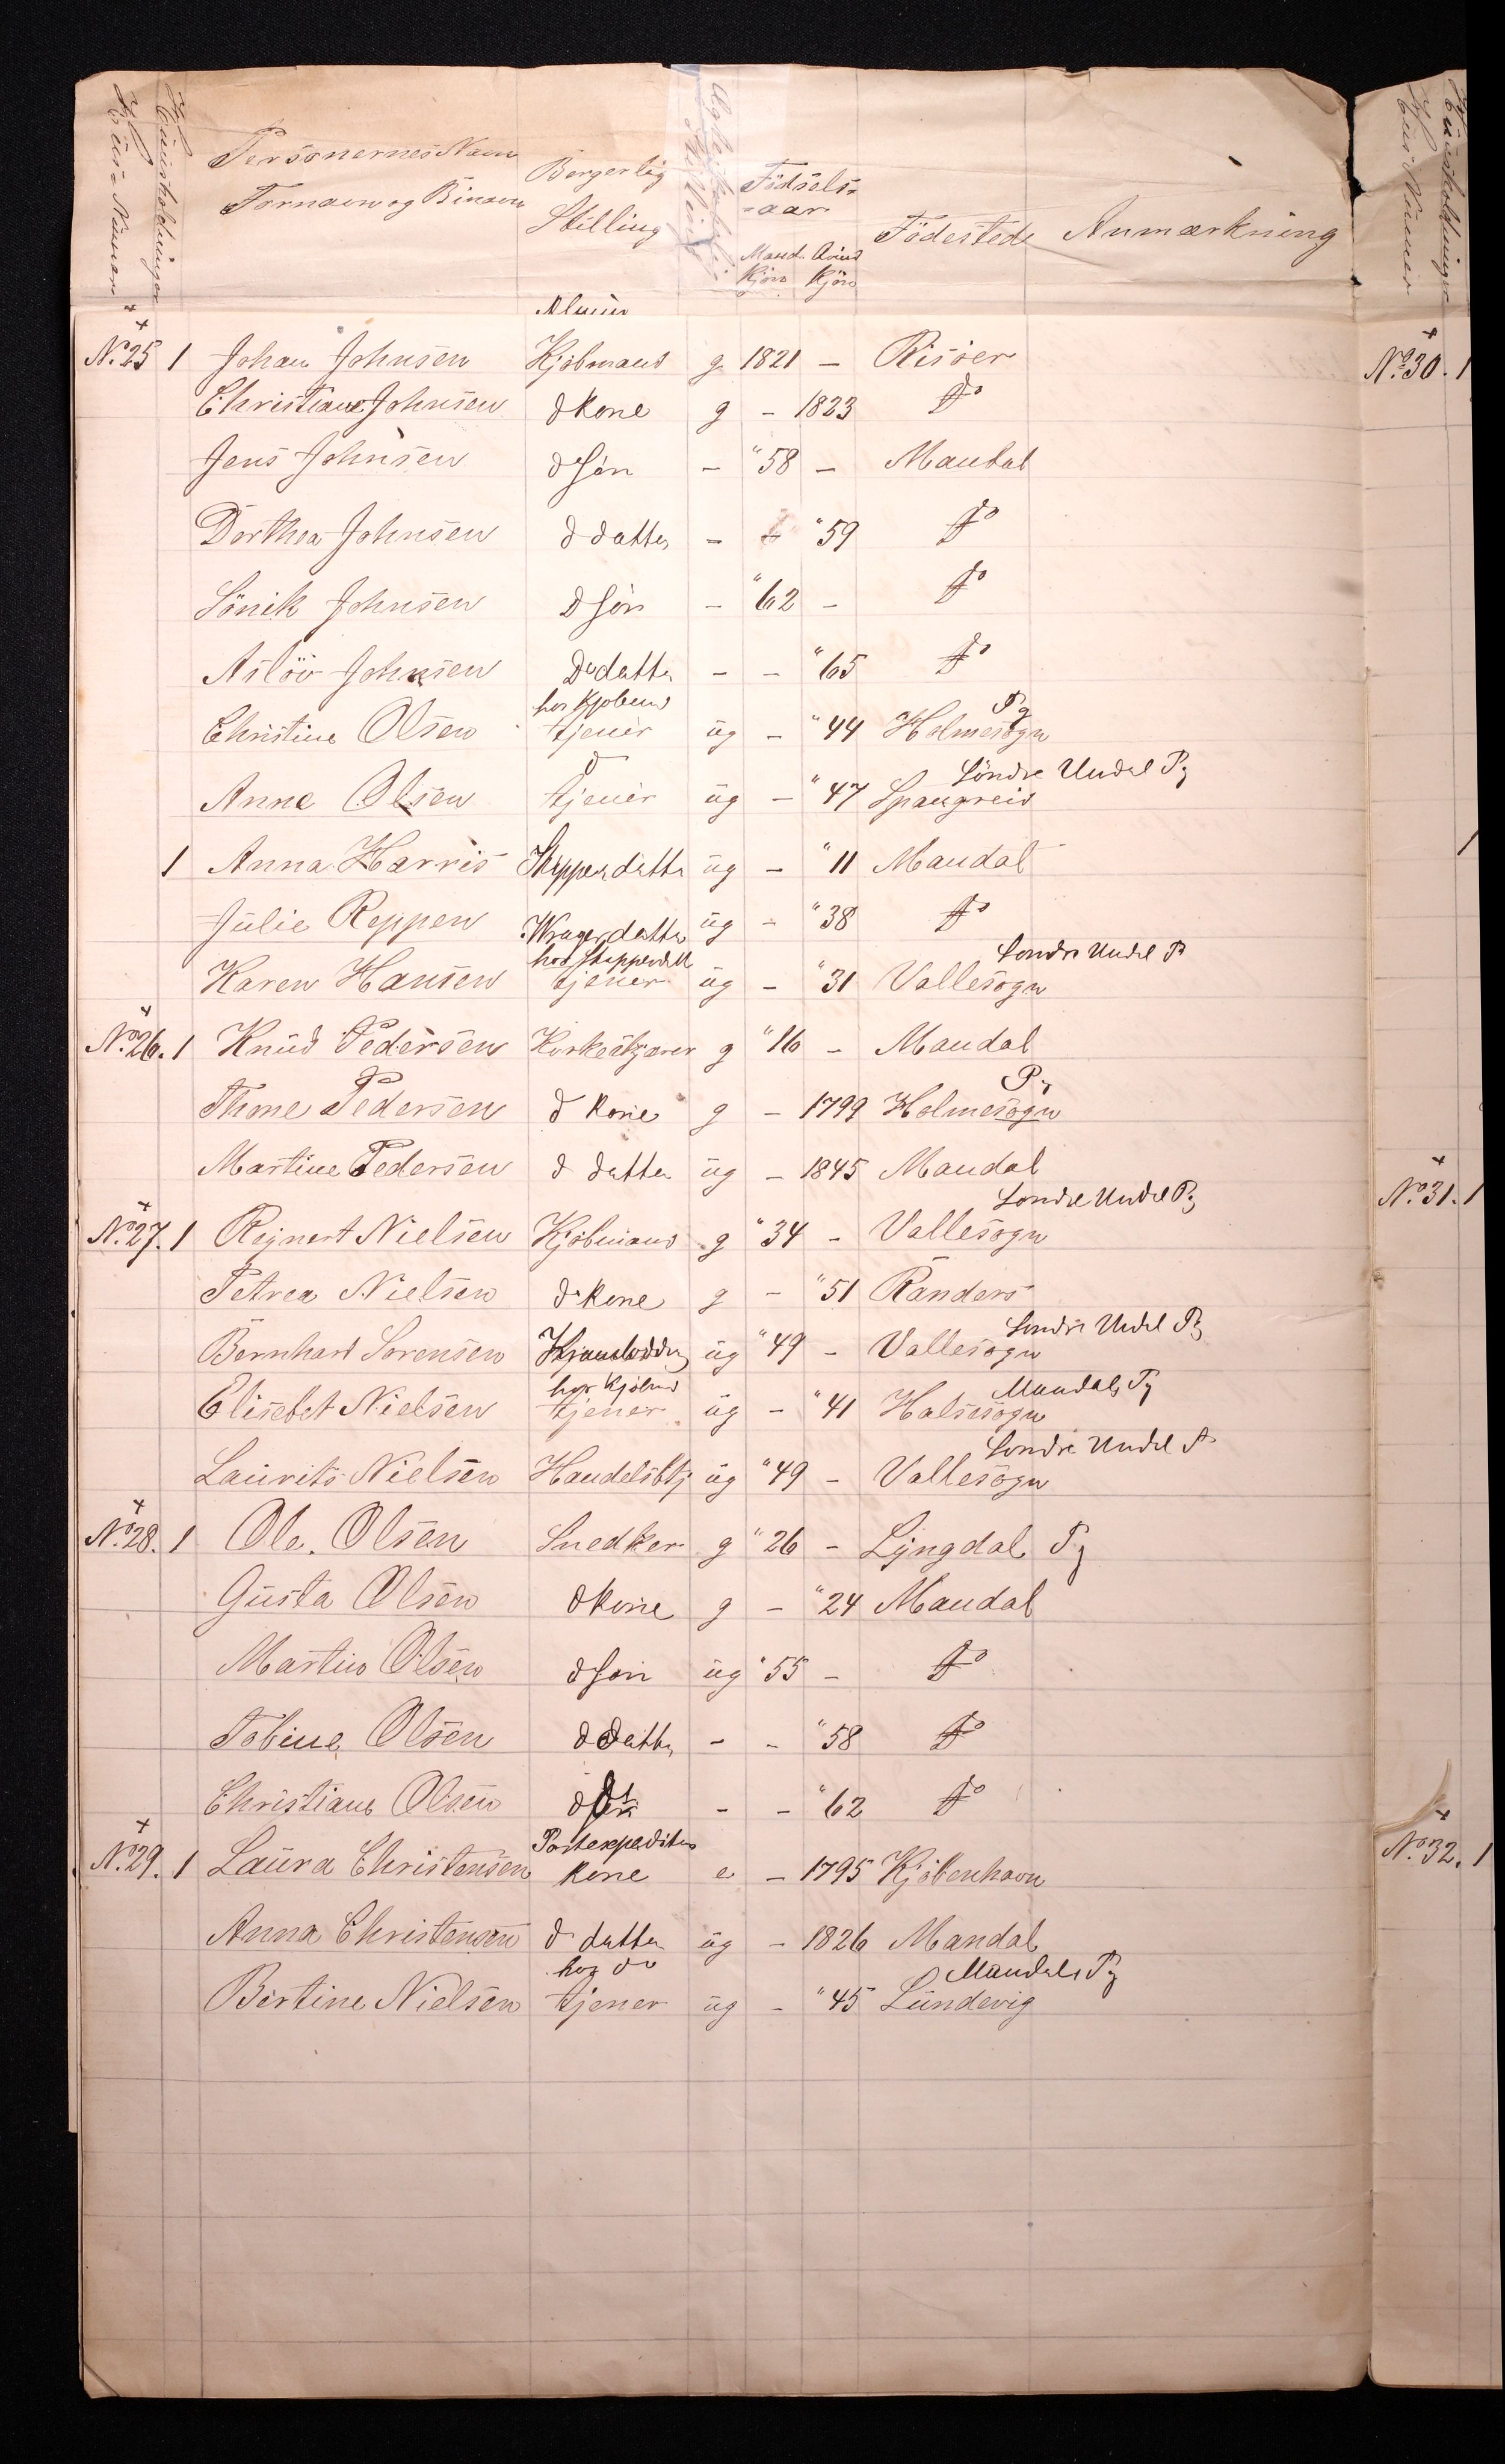 Huus-Numer
Huusholdninger
Personernes Navn
Fornavn og Binavn
Borgerlig
Stilling
Fødsels-
aar
Mand. Qvind
Kjön Kjön
Födested Anmærkning
No. 25 1 Johan Johnsen Kjöbmand g 1821 - Risöer
Christiane Johnsen d kone g - 1823 Do
Jens Johnsen d Sön - " 58 - Mandal
Dorthea Johnsen d datter - - " 59 Do
Sönik Johnsen d Sön - " 62 - Do
Aslöv Johnsen Do datter - - " 65 Do
hos Kjöbmd Pg
Christine Olsen tjener ug - " 44 Holmesogn
d Söndre Undal Pg
Anne Olsen tjener ug - " 47 Spangreid
1 Anna Harris Skipperdatter ug - " 11 Mandal
Julie Reppen Wragerdatter ug - " 38 Do
hos Skipperdatt Söndre Undal P
Karen Hansen tjener ug - " 31 Vallesogn
No. 26. 1 Knud Pedersen g " 16 - Mandal
Pg
Thone Pedersen d kone g - 1799 Holmesogn
Martine Pedersen d datter ug - 1845 Mandal
Söndre Undal Pg
No. 27. 1 Rejnert Nielsen Kjöbmand g " 34 - Vallesogn
Petrea Nielsen d kone g - " 51 Randers
Söndre Undal Pg
Bernhard Sorensen ug " 49 - Vallesogn
hos Kjöbmd Mandals Pg
Elisebet Nielsen tjener ug - " 41 Halsesogn
Söndre Undal P
Laurits Nielsen Handelsbtj ug " 49 - Vallesogn
No. 28. 1 Ole Olsen Snedker g " 26 - Lyngdal Pg
Gusta Olsen d kone g - " 24 Mandal
Martin Olsen d Sön ug " 55 - Do
Tobine Olsen d datter - - " 58 Do
Christiane Olsen d - - " 62 Do
Postexpeditør
No. 29. 1 Laura Christensen kone e - 1795 Kjöbenhavn
Anna Christensen d datter ug - 1826 Mandal
hos do Mandals Pg
Bertine Nielsen tjener ug - " 45 Lundevig
Huusholdninger
Huus Numer
No. 30. 1
1
No. 31. 1
No. 32. 1